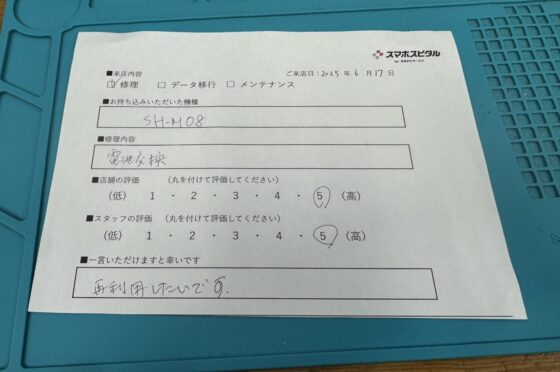 スマホスピタル
■来店内容
ご来店日：2025 年 6 月 17 日
☑ 修理 □ データ移行 □ メンテナンス
■お持ち込みいただいた機種
SH-M08
■修理内容
電池交換
■店舗の評価 （丸を付けて評価してください）
（低） 1 ・ 2 ・ 3 ・ 4 ・ 5 （高）
■スタッフの評価 （丸を付けて評価してください）
（低） 1 ・ 2 ・ 3 ・ 4 ・ 5 （高）
■一言いただけますと幸いです
再利用したいです.